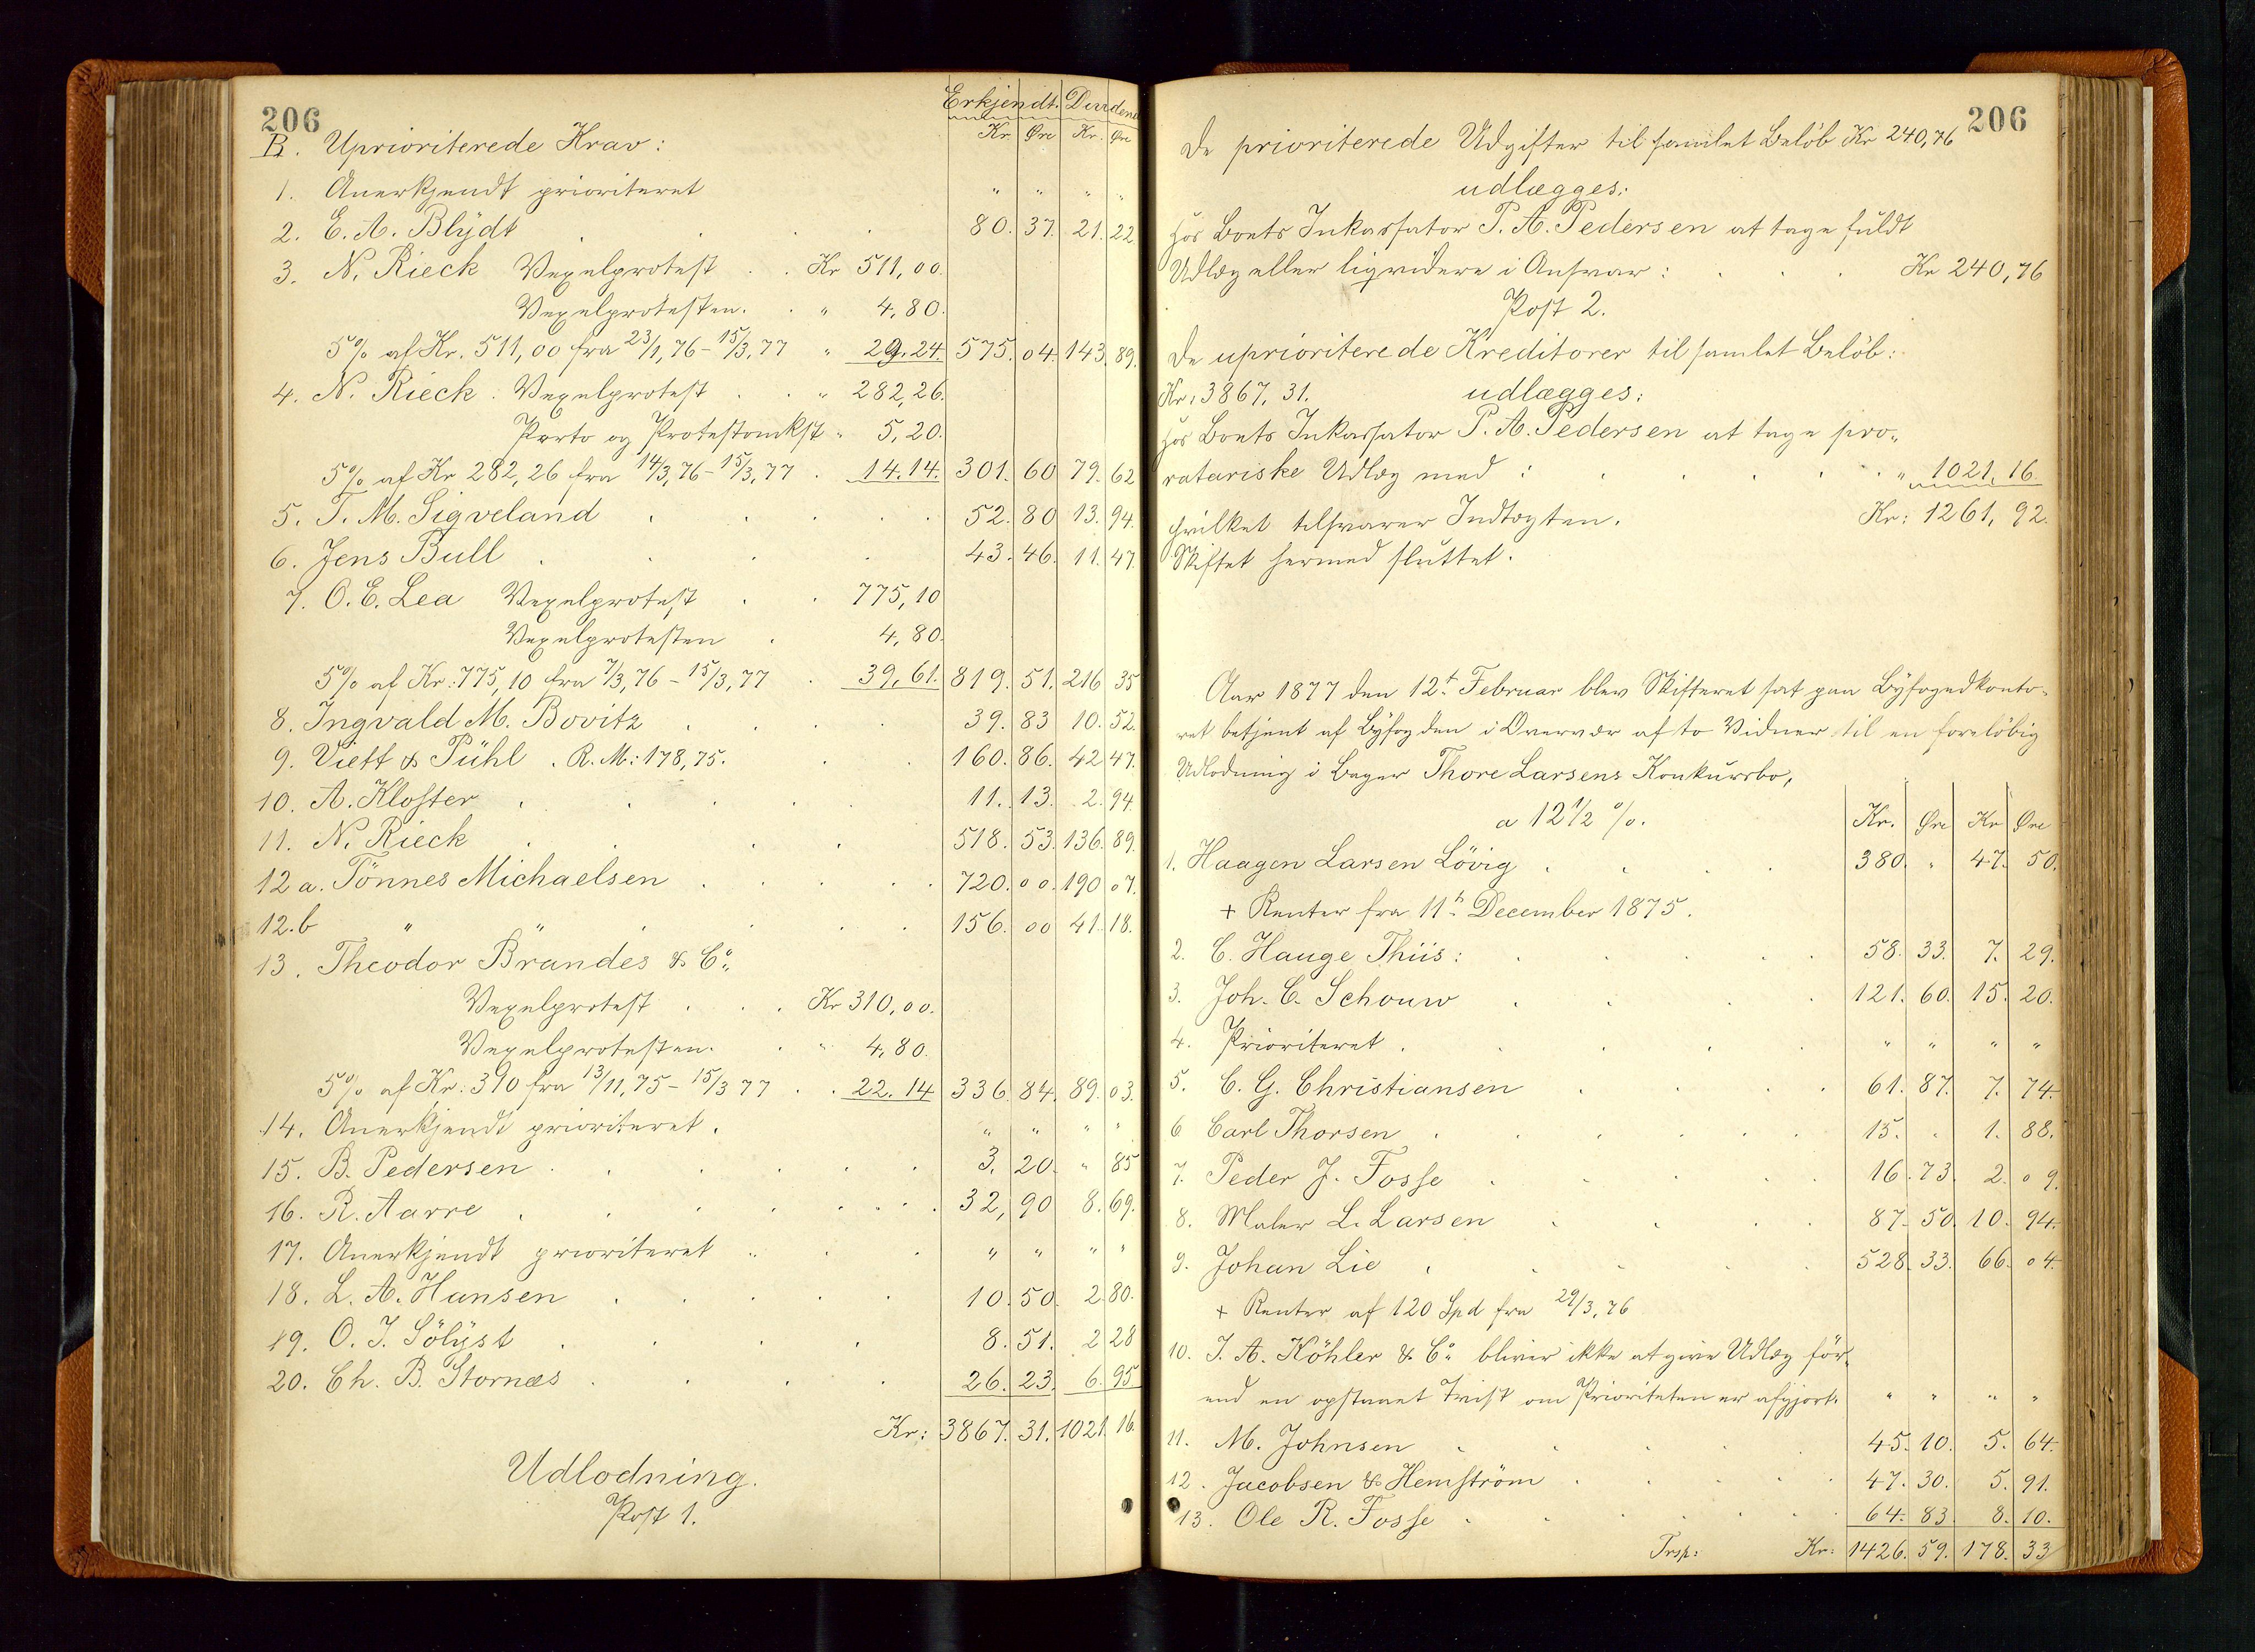 206
Erkjendt. Dividende
Kr Øre Kr. Øre
B. Uprioriterede Krav:
1. Anerkjendt prioriteret " " " "
2. E. A. Blÿdt . . . . 80. 37. 21. 22
3. N. Rieck Vexelprotest . . Kr 511,00.
Vexelprotesten. . " 4,80.
5% af Kr. 511,00 fra 23/1,76 – 15/3,77 " 29.24. 575. 04. 143. 89.
4. N. Rieck. Vexelprotest . . " 282,26.
Porto og Protestomkst " 5,20.
5% af Kr 282,26 fra 14/3,76 – 15/3,77 . 14.14. 301. 60 79. 62
5. T. M. Sigveland . . . . . 52. 80 13. 94.
6. Jens Bull . . . . 43. 46. 11. 47.
7. O. E. Lea Vexelprotest . . 775,10
Vexelprotesten . 4,80.
5% af Kr: 775,10 fra 7/3,76 – 15/3,77 . 39,61. 819. 51. 216 35
8. Ingvald M. Bovitz . . . . 39. 83 10. 52.
9. Vieft & Pühl . R. M.: 178,75. . . 160. 86. 42 47.
10. A. Kloster . . . . . 11. 13. 2. 94.
11. N. Rieck . . . . 518. 53. 136. 89.
12 a. Tönnes Michaelsen . . . . . 720. 00. 190 07.
12. b " " . . . . 156. 00 41. 18.
13. Theodor Brandes & Co.
Vexelprotest . . . Kr 310,00.
Vexelprotesten. . " 4,80.
5% af Kr: 310 fra 13/11,75 – 15/3 77 . . 22.14 336 84. 89. 03.
14. Anerkjendt prioriteret. " " " "
15. B. Pedersen . . . . . . 3. 20. " 85
16. R. Aarre . . . . . . . . 32, 90 8. 69.
17. Anerkjendt prioriteret . . . " " " "
18. L. A. Hansen . . . . . 10. 50. 2. 80.
19. O. J. Sölÿst . . . . 8. 51. 2 28
20. Ch. B. Stornæs . . . . 26. 23. 6. 95
Kr: 3867. 31. 1021. 16.
Udlodning.
Post 1.
206
De prioriterede Udgifter til samlet Beløb Kr 240,76
udlægges:
hos Boets Inkassator P. A. Pedersen at tage fuldt
Udlæg eller liqvidere i Ansvar: . . . Kr 240,76
Post 2.
De uprioriterede Kreditorer til samlet Beløb:
Kr: 3867,31. udlægges:
hos Boets Inkassator P. A. Pedersen at tage pro-
ratariske Udlæg med : . . . . . " 1021,16.
hvilket tilsvarer Indtægten. Kr: 1261,92.
Skiftet hermed sluttet.
Aar 1877 den 12t. Februar blev Skifteret sat paa Bÿfogedkonto-
ret betjent af Bÿfogden i Overvær af to Vidner til en foreløbig
Udlodning i Bager Thore Larsens Konkursbo,
a 12 1/2 %. Kr. Øre Kr Øre
1. Haagen Larsen Lövig . . . . 380. " 47. 50.
+ Renter fra 11t. December 1875.
2. C. Hauge Thiis: . . . . . 58. 33. 7. 29.
3. Joh. C. Schouw . . . . 121. 60. 15. 20.
4. Prioriteret . . . . . " " " "
5. C. G. Christiansen . . . . 61. 87. 7. 74.
6 Carl Thorsen . . . . . . 15. " 1. 88.
7. Peder J. Fosse . . . . . 16. 73. 2. 09.
8. Maler L. Larsen . . . . 87. 50. 10. 94.
9. Johan Lie . . . . . 528. 33. 66. 04.
+ Renter af 120 Spd fra 29/3,76
10. J. A. Köhler & Co. bliver ikke at give Udlæg før-
end en opstaaet Tvist om Prioriteten er afgjort. " " " "
11. M. Johnsen . . . . 45. 10. 5. 64.
12. Jacobsen & Hemström . . . . . 47. 30. 5. 91.
13. Ole R. Fosse . . . . . . 64. 83. 8. 10.
Trsp: Kr: 1426. 59. 178. 33